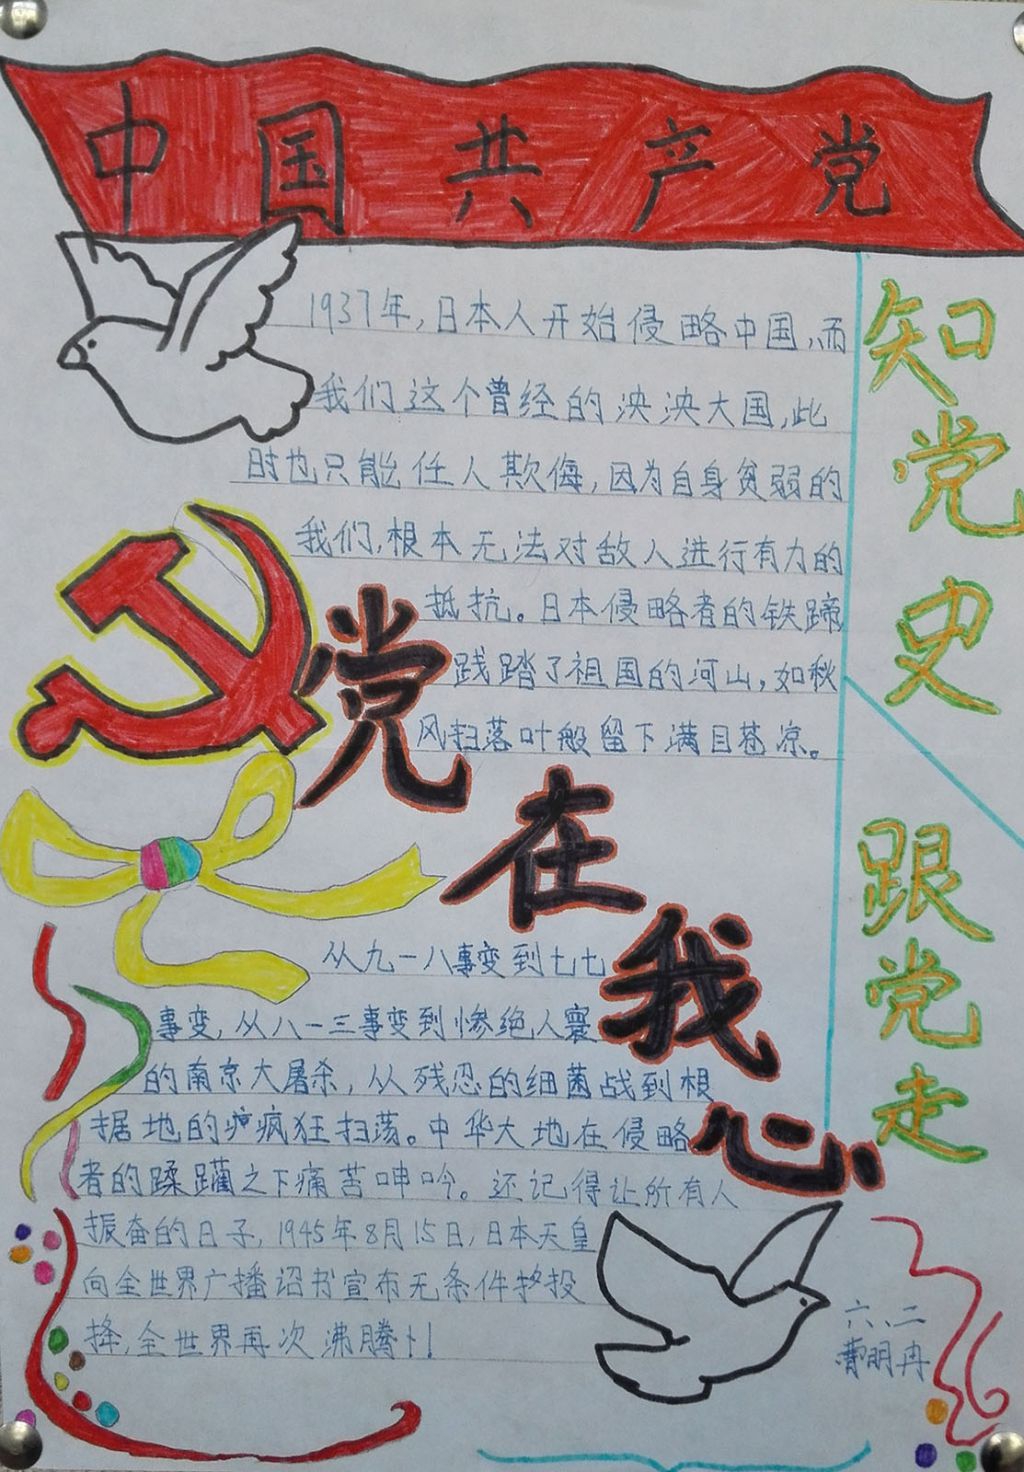 中国共产党
1937年,日本人开始侵略中国,而
我们这个曾经的泱泱大国,此
时也只能任人欺侮,因为自身贫弱的
我们,根本无法对敌人进行有力的
抵抗。日本侵略者的铁蹄
践踏了祖国的河山,如秋
风扫落叶般留下满目苍凉。
党在我心
从九一八事变到七七
事变,从八一三事变到惨绝人寰
的南京大屠杀,从残忍的细菌战到根
据地的疯狂扫荡。中华大地在侵略
者的蹂躏之下痛苦呻吟。还记得让所有人
振奋的日子,1945年8月15日,日本天皇
向全世界广播诏书宣布无条件投
降,全世界再次沸腾!
知党史
跟党走
六、二
曹明冉